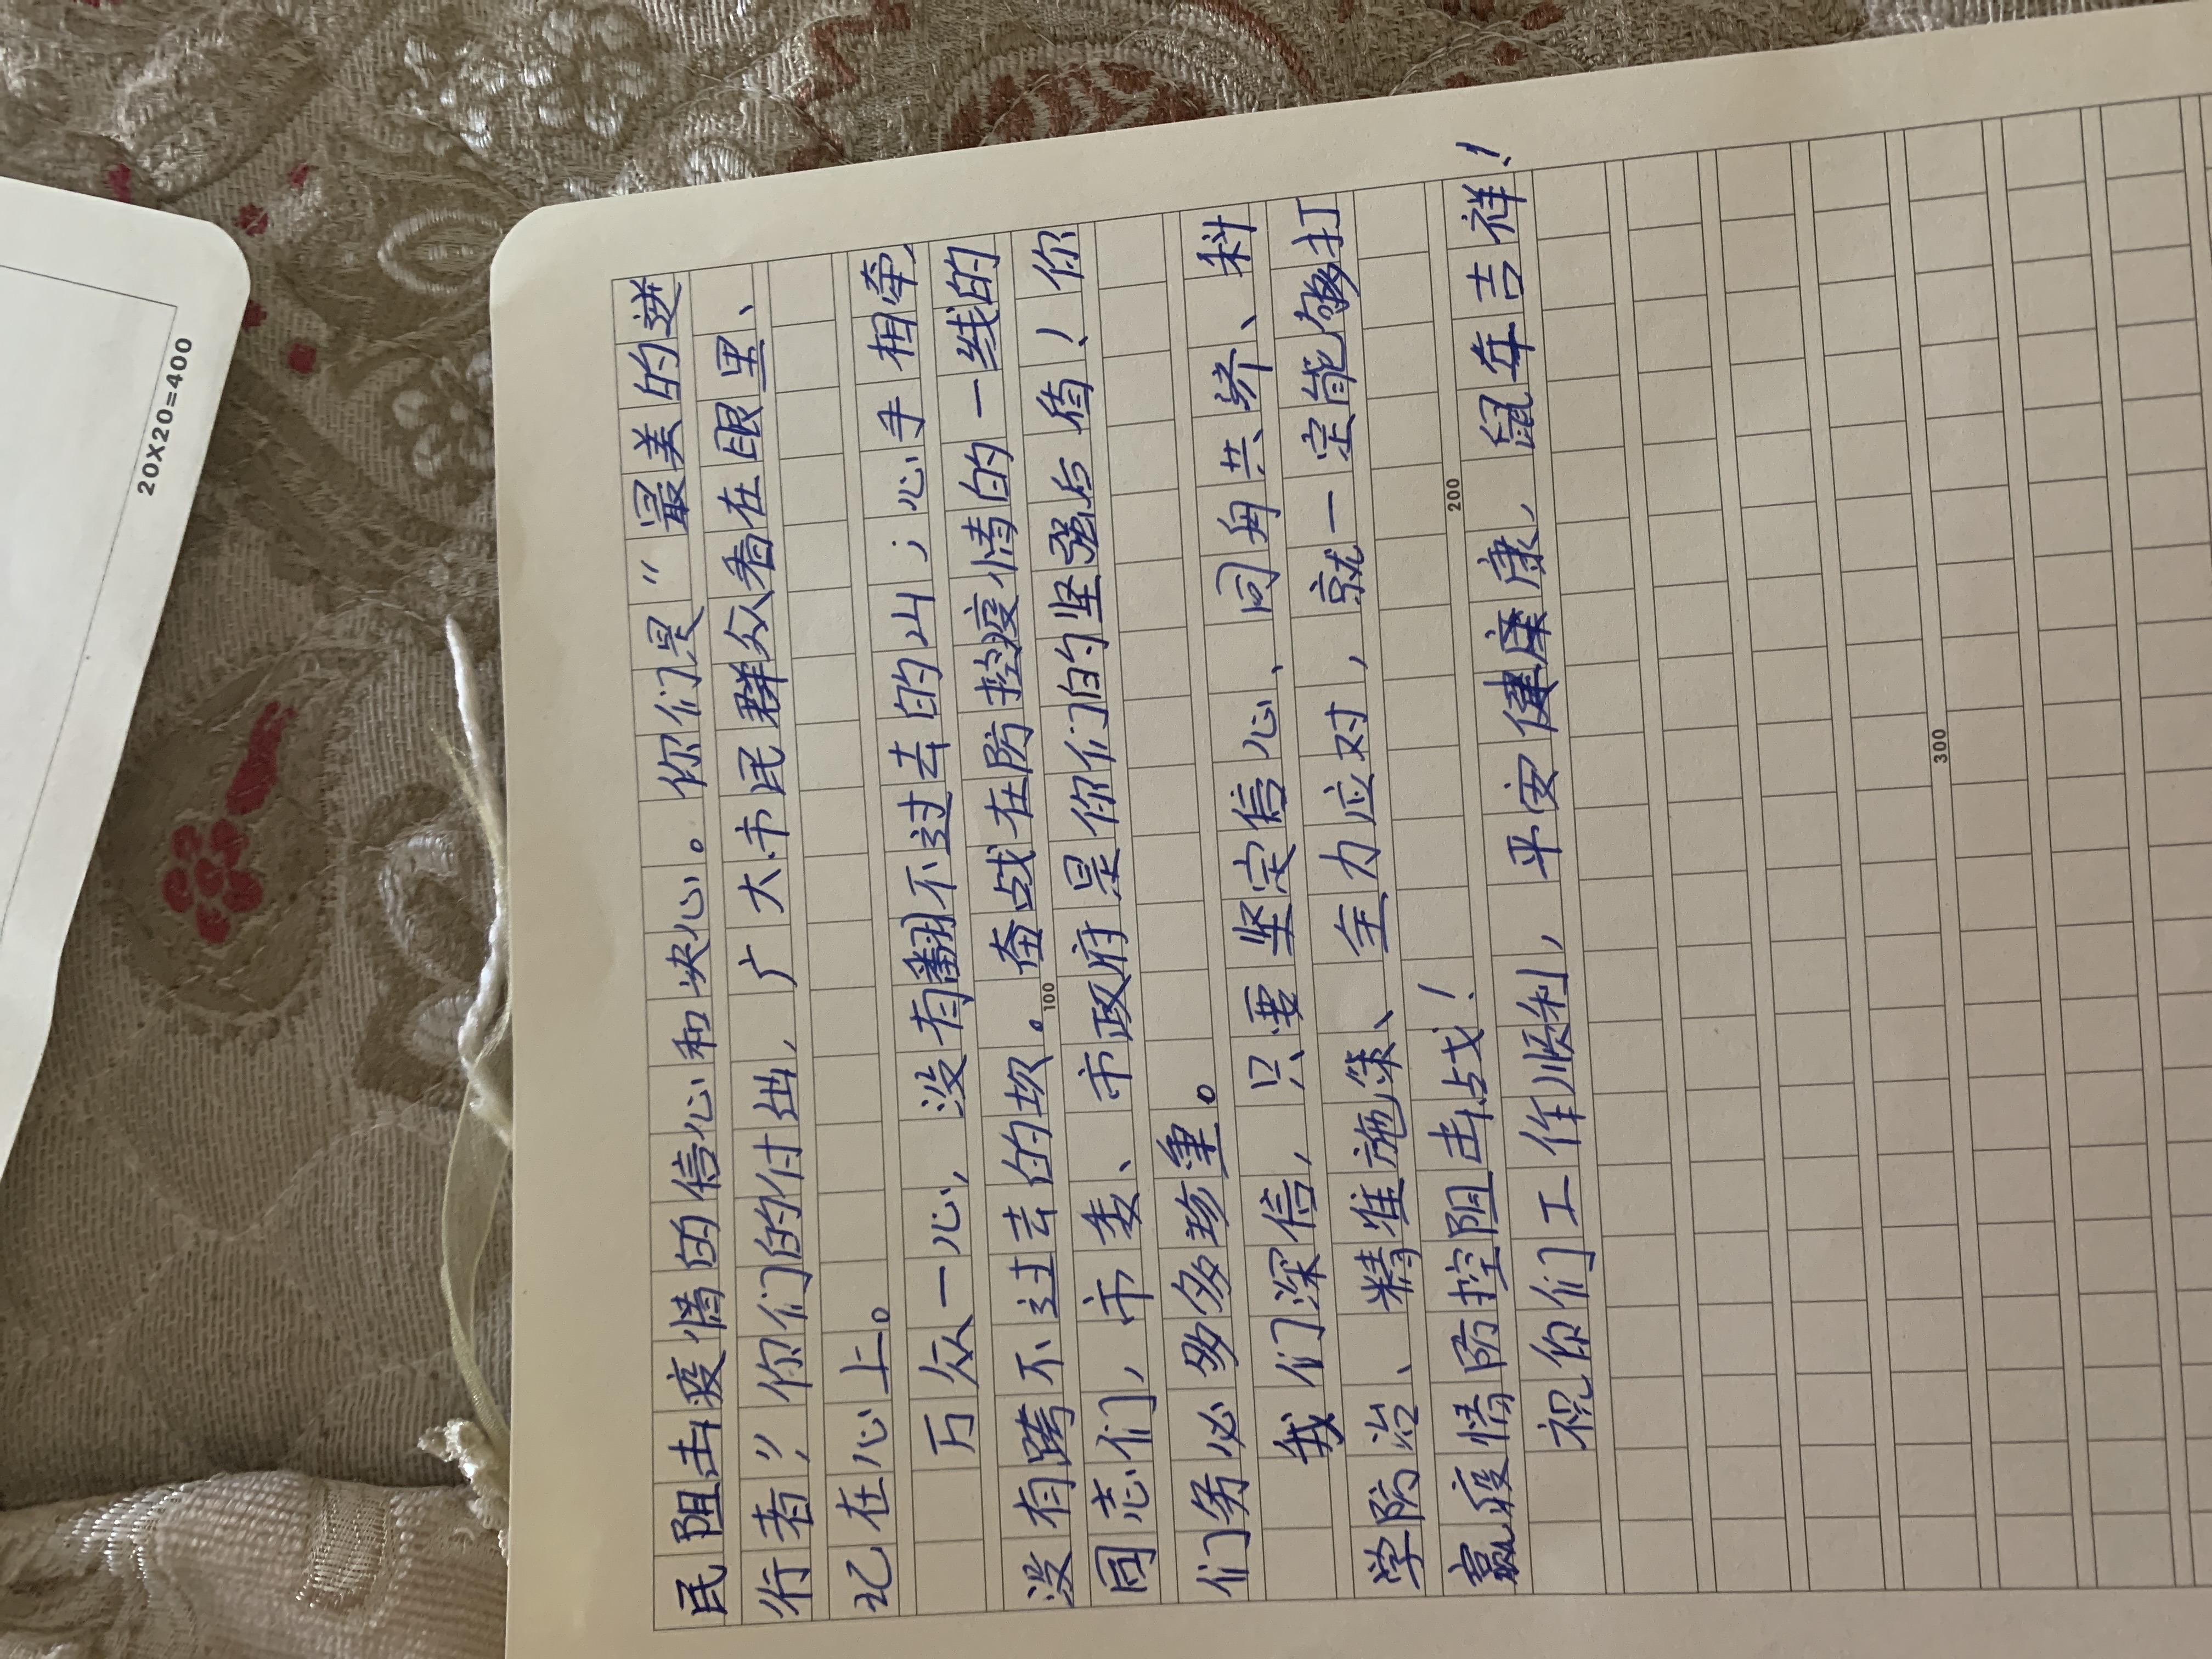 20X20=400
民阻击疫情的信心和决心。你们是“最美的逆
行者”你们的付出,广大市民群众看在眼里、
记在心上。
万众一心,没有翻不过去的山;心手相牵,
没有跨不过去的坎。奋战在防控疫情的一线的
100
同志们,市委、市政府是你们的坚强后盾!你
们务必多多珍重。
我们深信,只要坚定信心、同舟共济、科
学防治、精准施策、全力应对,就一定能够打
赢疫情防控阻击战!
200
祝你们工作顺利,平安健康康,鼠年吉祥!
300